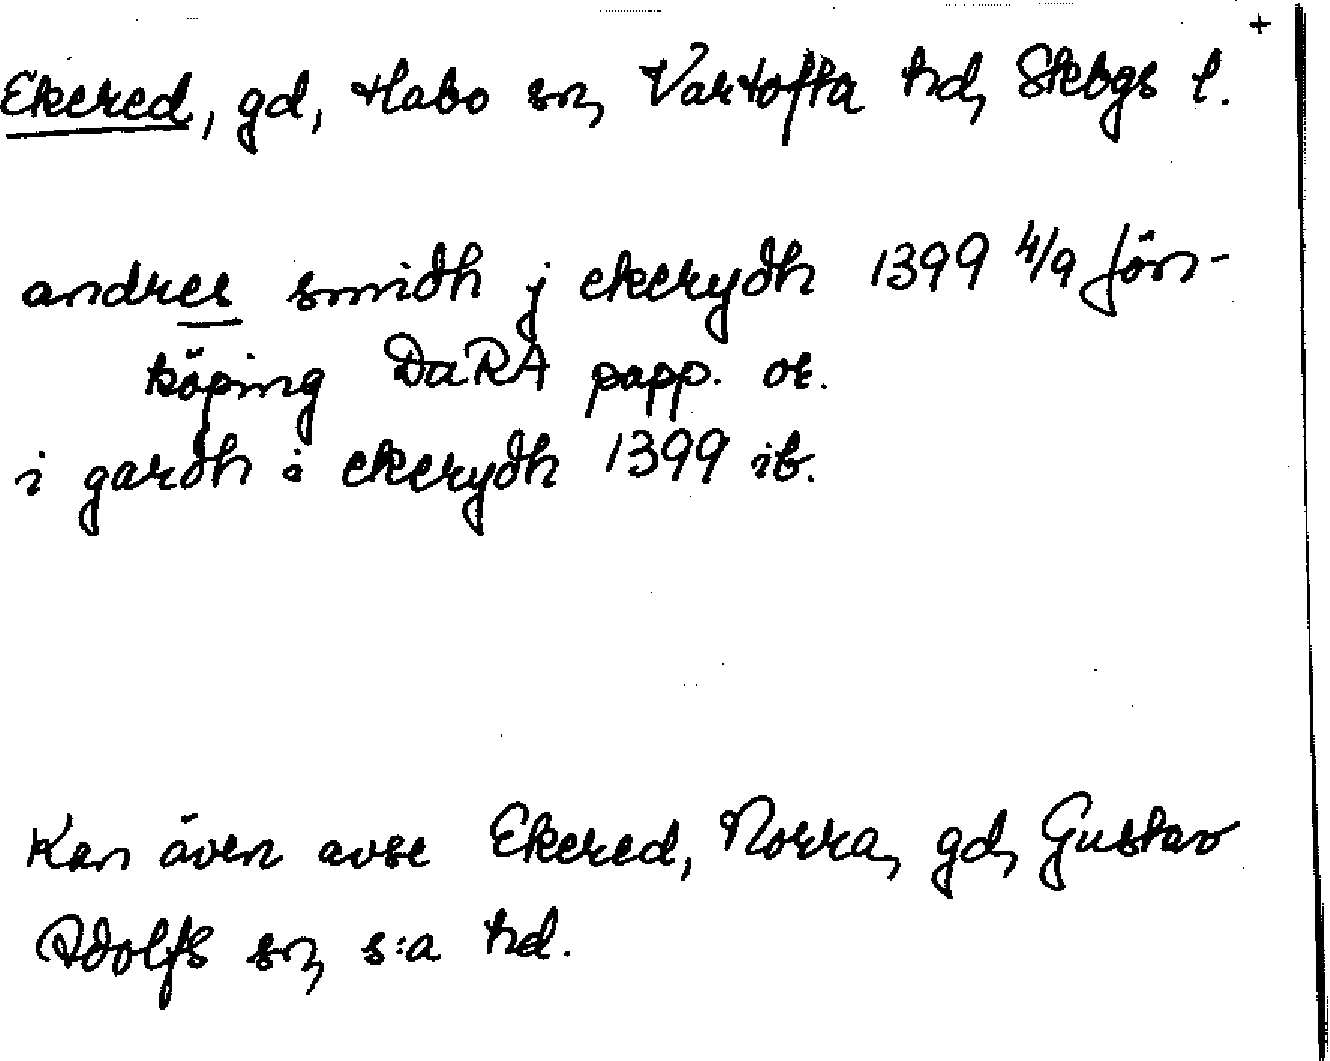 +
Ekered, gd, Habo sn, Vartofta hd, Skbgs l.
andres smidh j ekerydh 1399 4/9 Jön-
köping DaRA papp. or.
i gardh i ekerydh 1399 ib.
Kan även avse Ekered, Norra, gd, Gustav
Adolfs sn, s:a hd.